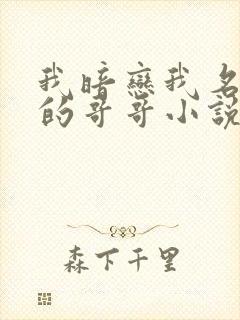 我暗戀我名
的哥哥小說
森下千里